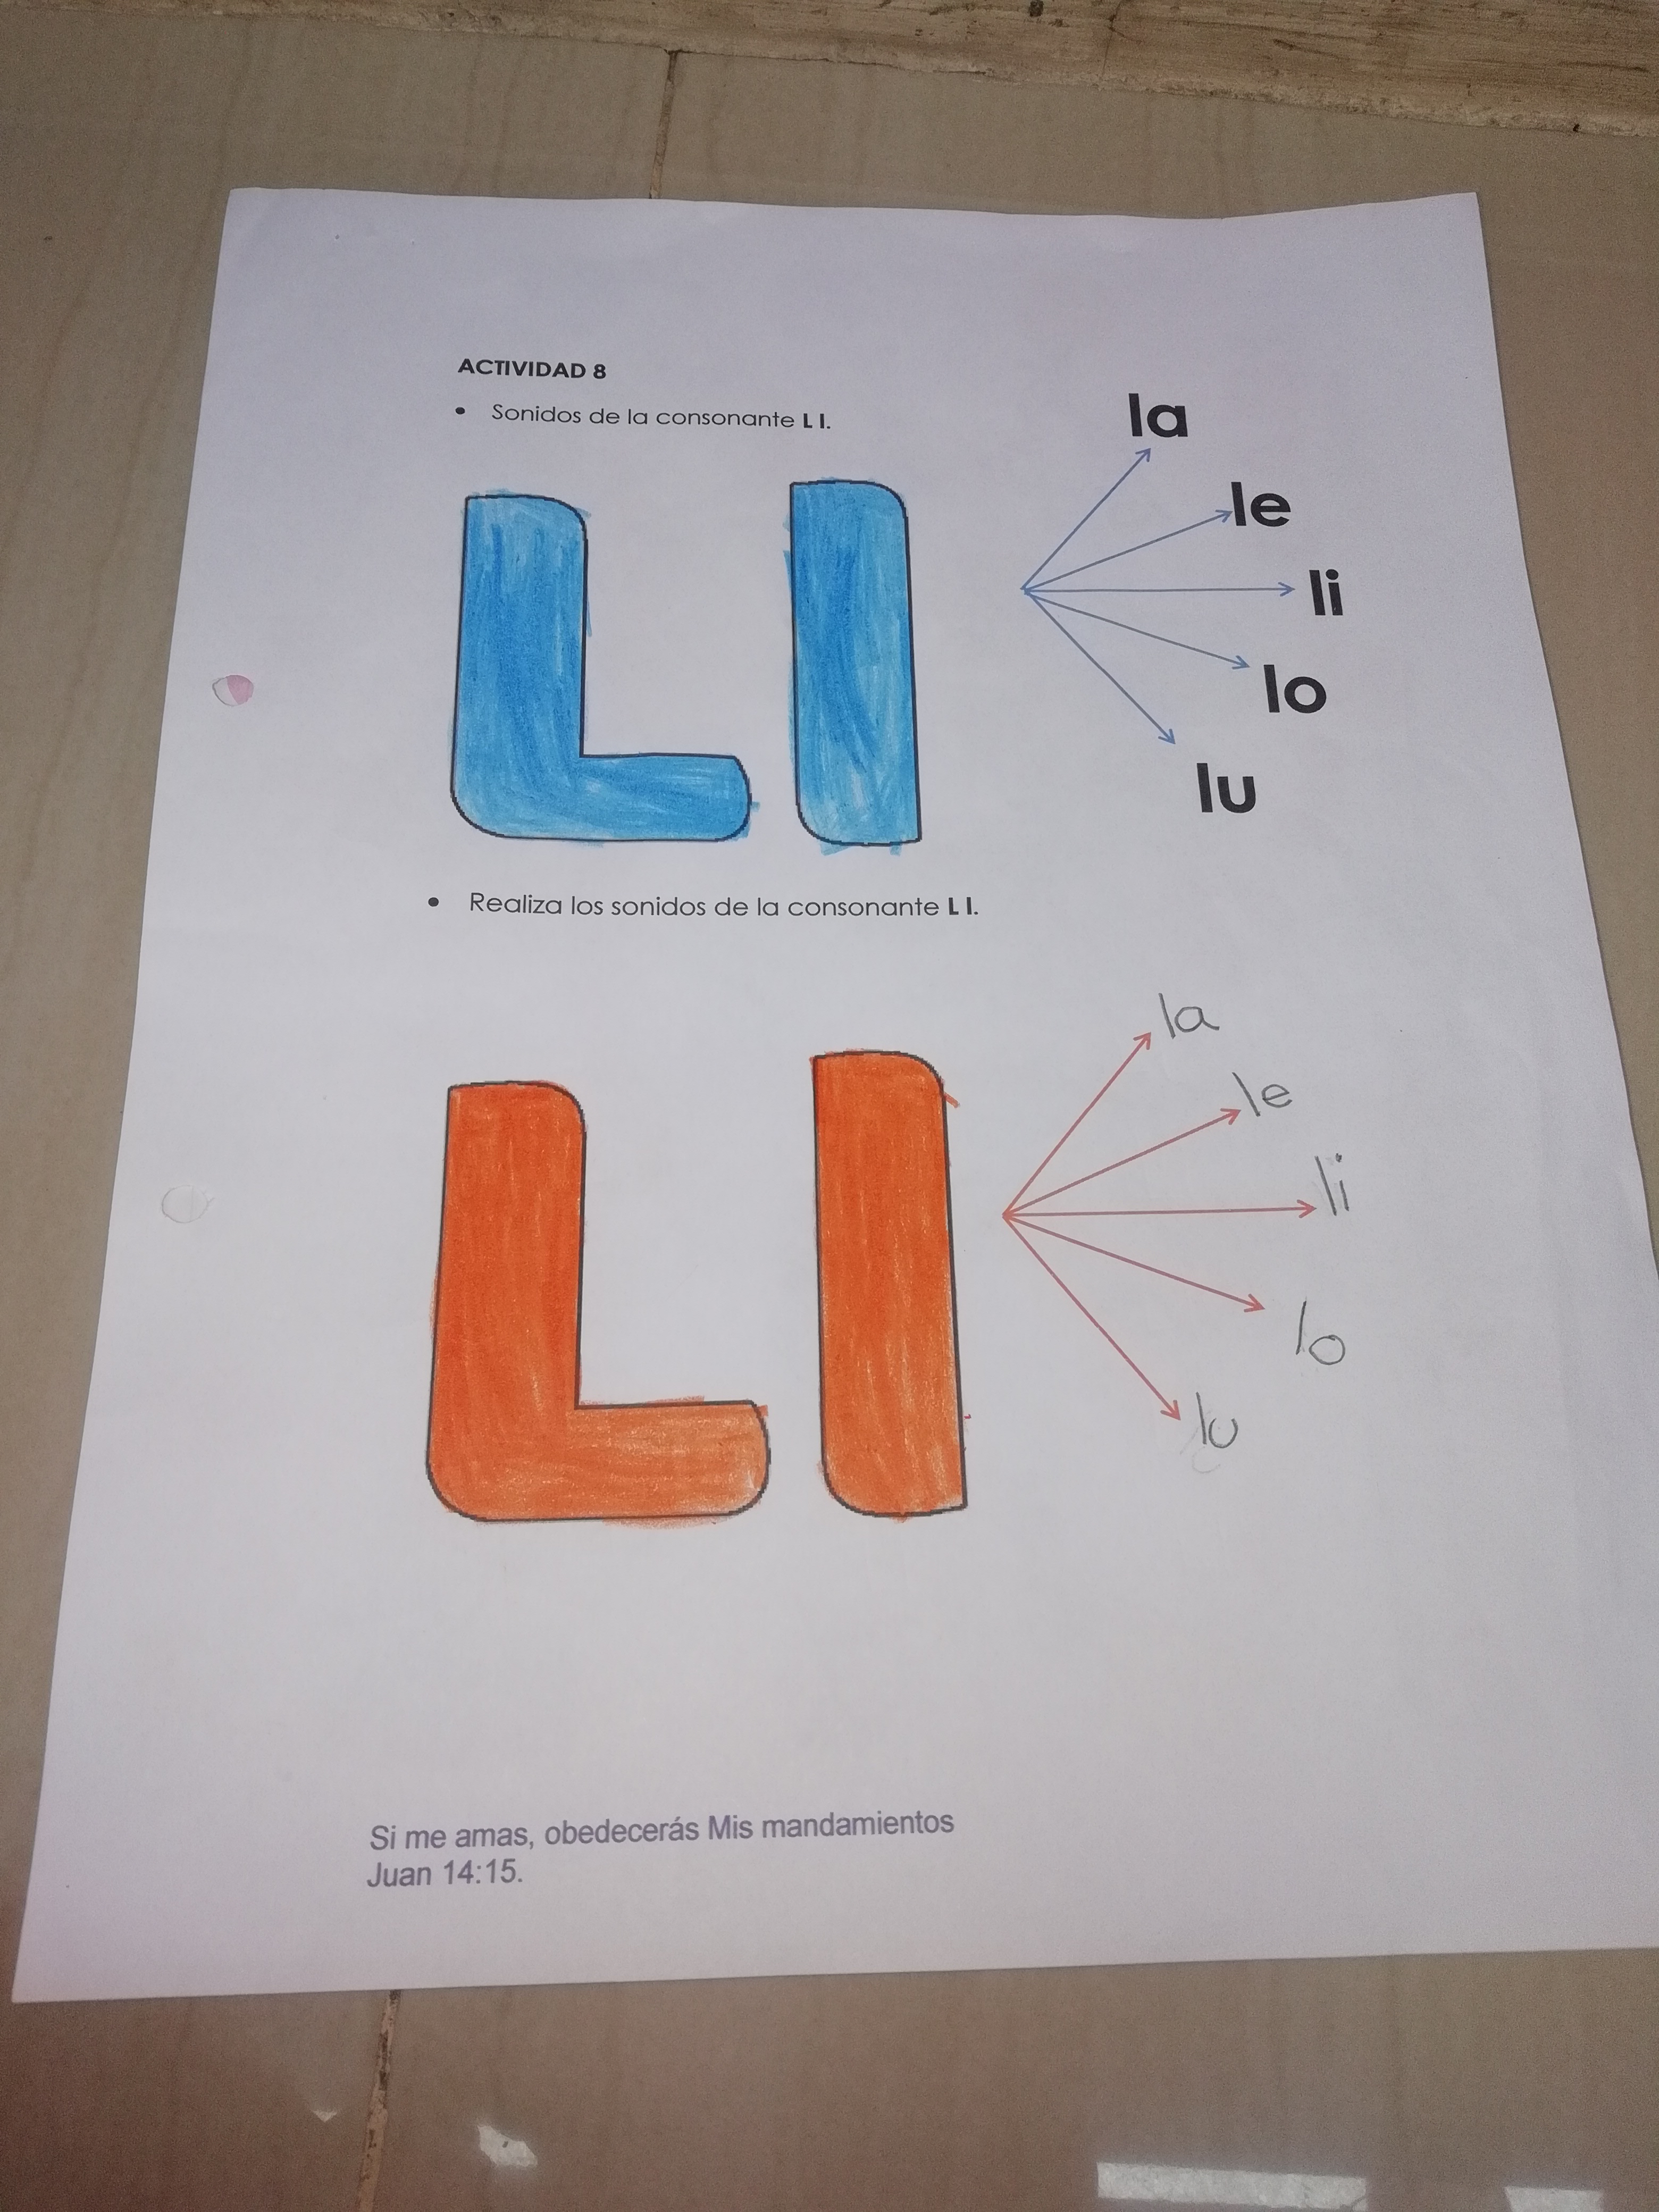 ACTIVIDAD 8
• Sonidos de la consonante L l.
L l
la
le
li
lo
lu
• Realiza los sonidos de la consonante L l.
L l
la
le
li
lo
lu
Si me amas, obedecerás Mis mandamientos
Juan 14:15.